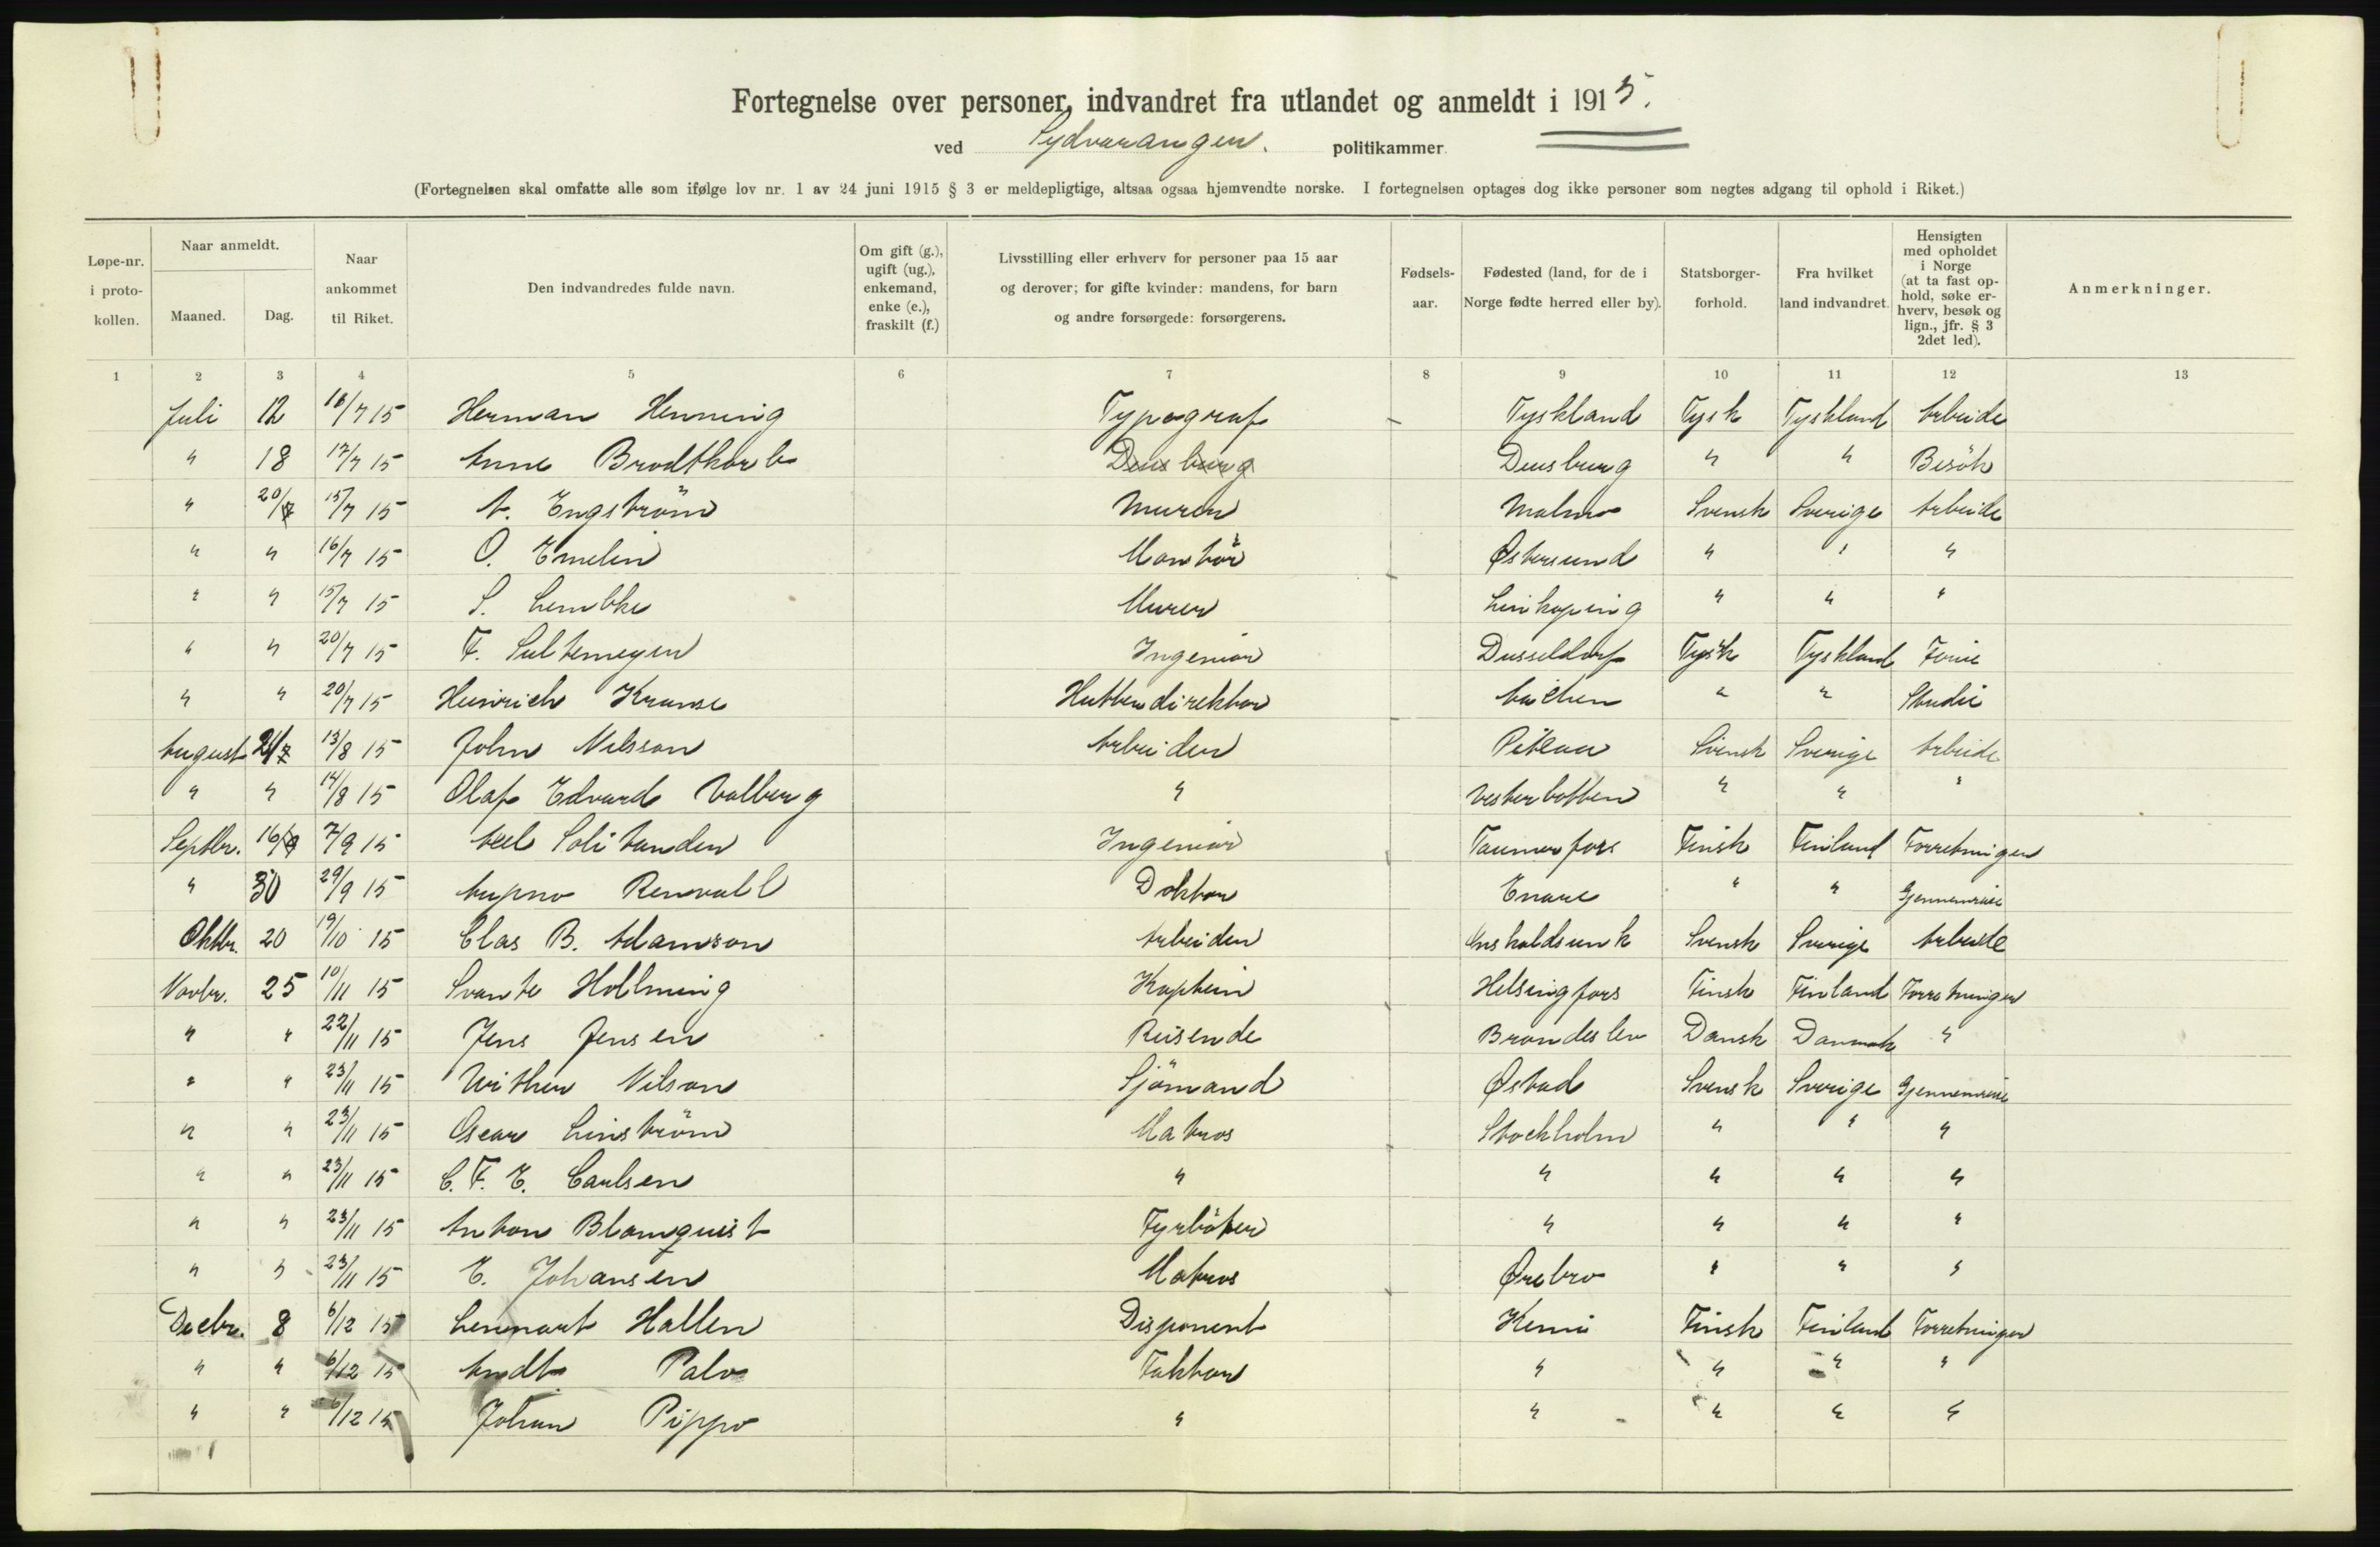 Fortegnelse over personer, indvandret fra utlandet og anmeldt i 1915.
ved Sydvarangen. politikammer
(Fortegnelsen skal omfatte alle som ifølge lov nr. 1 av 24 juni 1915 § 3 er meldepligtige, altsaa ogsaa hjemvendte norske. I fortegnelsen optages dog ikke personer som negtes adgang til ophold i Riket.)
Løpe-nr. i proto-kollen.
Naar anmeldt.
Maaned. Dag.
Naar ankommet til Riket.
Den indvandredes fulde navn.
Om gift (g.), ugift (ug.), enkemand, enke (e.), fraskilt (f.)
Livsstilling eller erhverv for personer paa 15 aar og derover; for gifte kvinder: mandens, for barn og andre forsørgede: forsørgerens.
Fødsels-aar.
Fødested (land, for de i Norge fødte herred eller by).
Statsborger-forhold.
Fra hvilket land indvandret.
Hensigten med opholdet i Norge (at ta fast op-hold, søke er-hverv, besøk og lign., jfr. § 3 2det led).
Anmerkninger.
1 2 3 4 5 6 7 8 9 10 11 12 13
Juli 12 16/7 15 Herman Henning Typograf Tyskland Tysk Tyskland Arbeide
" 18 17/7 15 Anne Brodtkorb Deusburg Deusburg " " Besök
" 20/7 15/7 15 A. Engström Murer Malmo Svensk Sverige Arbeide
" " 16/7 15 O. Emelin Montör Østersund " " "
" " 15/7 15 S. Lembke Murer Linkoping " " "
" " 20/7 15 F. Sultemeyer Ingeniør Dusseldorf Tysk Tyskland Ferie
" " 20/7 15 Heinrich Krause Huttendirektor Aachen " " Studie
August 21/7 13/8 15 John Nilsson Arbeider Piteaa Svensk Sverige Arbeide
" " 14/8 15 Olaf Edvard Valberg " Vesterbotten " " "
Septbr. 16/9 7/9 15 Axel Solitander Ingeniør Tammerfors Finsk Finland Forretninger
" 30 29/9 15 Renvall Doktor Enare " " Gjennemreise
Oktbr. 20 19/10 15 Clas B. Adamson Arbeider Svensk Sverige Arbeide
Novbr. 25 10/11 15 Svante Hollming Kaptein Helsingfors Finsk Finland Forretninger
" " 22/11 15 Jens Jensen Reisende Brondeslev Dansk Danmark "
" " 23/11 15 Nilson Sjömand Østad Svensk Sverige Gjennemreise
" " 23/11 15 Oscar Linström Matros Stockholm " " "
" " 23/11 15 C. F. E. Carlsen " " " " "
" " 23/11 15 Anton Blomquist Fyrböter " " " "
" " 23/11 15 E. Johansen Matros Ørebro " " "
Decbr. 8 6/12 15 Lennart Hallen Disponent Kemi Finsk Finland Forretninger
" " 6/12 15 Palo Faktor " " " "
" " 6/12 15 Johan Pippo " " " " "